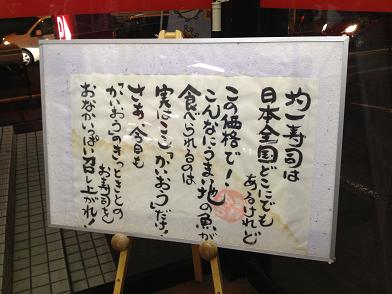 均一寿司は
日本全国どこでも
あるけれど
この価格で!
こんなにうまい地の魚が
食べられるのは
実はここ「かいおう」だけ!
さあ、今日も
「かいおう」のきっときとの
お寿司を
おなかいっぱい召し上がれ!